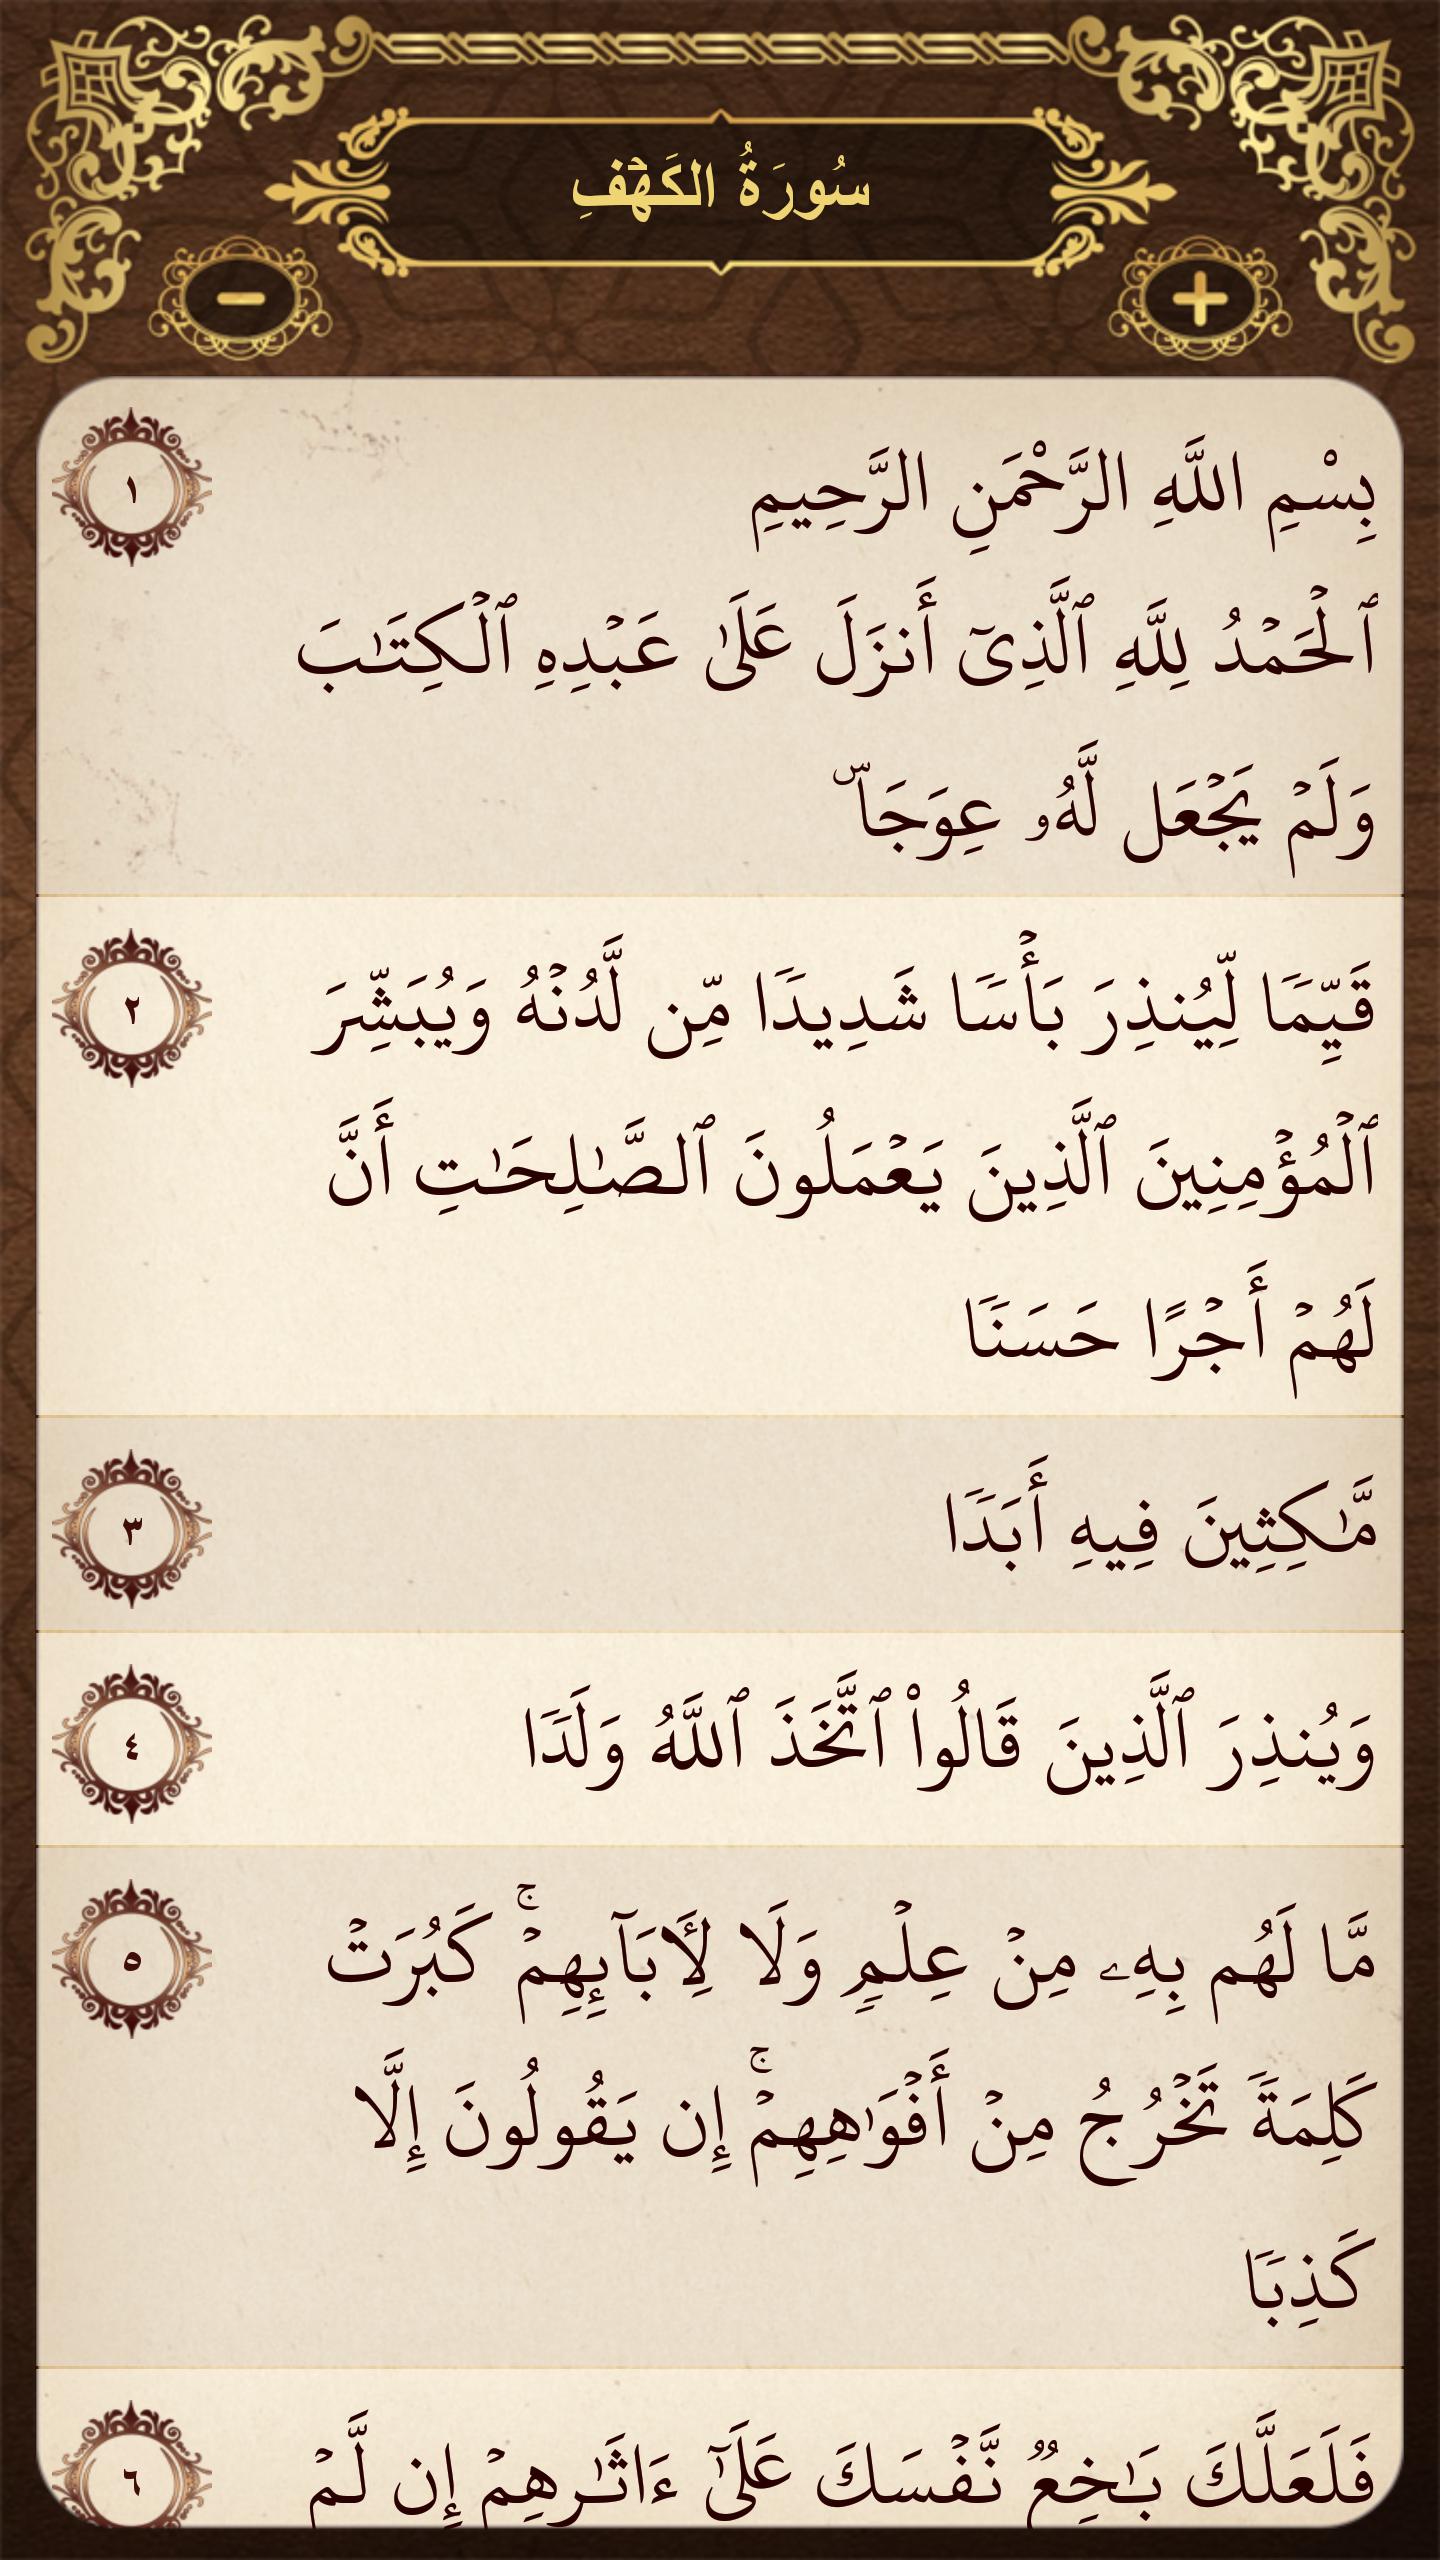 سُورَةُ الكَهۡفِ
١
بِسْمِ اللَّهِ الرَّحْمَنِ الرَّحِيمِ
ٱلۡحَمۡدُ لِلَّهِ ٱلَّذِىٓ أَنزَلَ عَلَىٰ عَبۡدِهِ ٱلۡكِتَـٰبَ
وَلَمۡ يَجۡعَل لَّهُۥ عِوَجَاۜ
٢
قَيِّمً۬ا لِّيُنذِرَ بَأۡسً۬ا شَدِيدً۬ا مِّن لَّدُنۡهُ وَيُبَشِّرَ
ٱلۡمُؤۡمِنِينَ ٱلَّذِينَ يَعۡمَلُونَ ٱلصَّـٰلِحَـٰتِ أَنَّ
لَهُمۡ أَجۡرًا حَسَنً۬ا
٣
مَّـٰكِثِينَ فِيهِ أَبَدً۬ا
٤
وَيُنذِرَ ٱلَّذِينَ قَالُواْ ٱتَّخَذَ ٱللَّهُ وَلَدً۬ا
٥
مَّا لَهُم بِهِۦ مِنۡ عِلۡمٍ۬ وَلَا لِأَبَآٮِٕهِمۡ‌ۚ كَبُرَتۡ
ڪَلِمَةً۬ تَخۡرُجُ مِنۡ أَفۡوَٲهِهِمۡ‌ۚ إِن يَقُولُونَ إِلَّا
كَذِبً۬ا
٦
فَلَعَلَّكَ بَـٰخِعٌ۬ نَّفۡسَكَ عَلَىٰٓ ءَاثَـٰرِهِمۡ إِن لَّمۡ